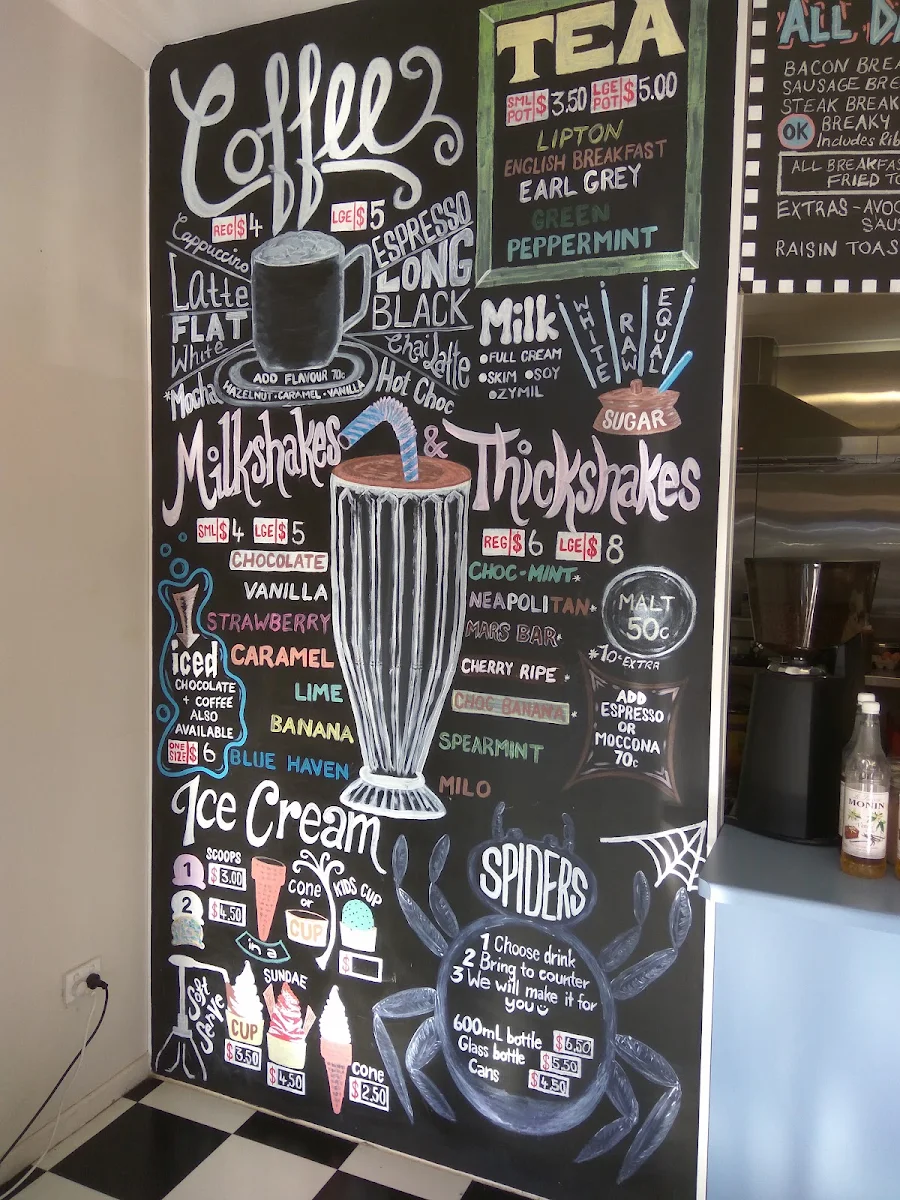 Coffee
REG $ 4
LGE $ 5
Cappuccino
Latte
FLAT
White
*Mocha
ESPRESSO
LONG
BLACK
Chai Latte
Hot Choc
ADD FLAVOUR 70c
HAZELNUT • CARAMEL • VANILLA
TEA
SML POT $ 3.50 LGE POT $ 5.00
LIPTON
ENGLISH BREAKFAST
EARL GREY
GREEN
PEPPERMINT
Milk
• FULL CREAM
• SKIM • SOY
• ZYMIL
WHITE
RAW
EQUAL
SUGAR
Milkshakes & Thickshakes
SML $ 4 LGE $ 5
CHOCOLATE
VANILLA
STRAWBERRY
CARAMEL
LIME
BANANA
BLUE HAVEN
iced
CHOCOLATE
+ COFFEE
ALSO
AVAILABLE
ONE SIZE $ 6
REG $ 6 LGE $ 8
CHOC-MINT*
NEAPOLITAN*
MARS BAR*
CHERRY RIPE *
CHOC BANANA*
SPEARMINT
MILO
MALT
50c
*70c EXTRA
ADD
ESPRESSO
OR
MOCCONA
70c
Ice Cream
SCOOPS
1 $3.00
2 $4.50
in a
CONE
or
CUP
KIDS CUP
$
Soft Serve
CUP
$3.50
SUNDAE
$4.50
CONE
$2.50
SPIDERS
1 Choose drink
2 Bring to counter
3 We will make it for
you
600mL bottle $6.50
Glass bottle $5.50
Cans $4.50
ALL DA
BACON BREA
SAUSAGE BRE
STEAK BREAK
OK BREAKY
Includes Rib
ALL BREAKFAS
FRIED TO
EXTRAS-AVOC
SAUS
RAISIN TOAS
MONIN